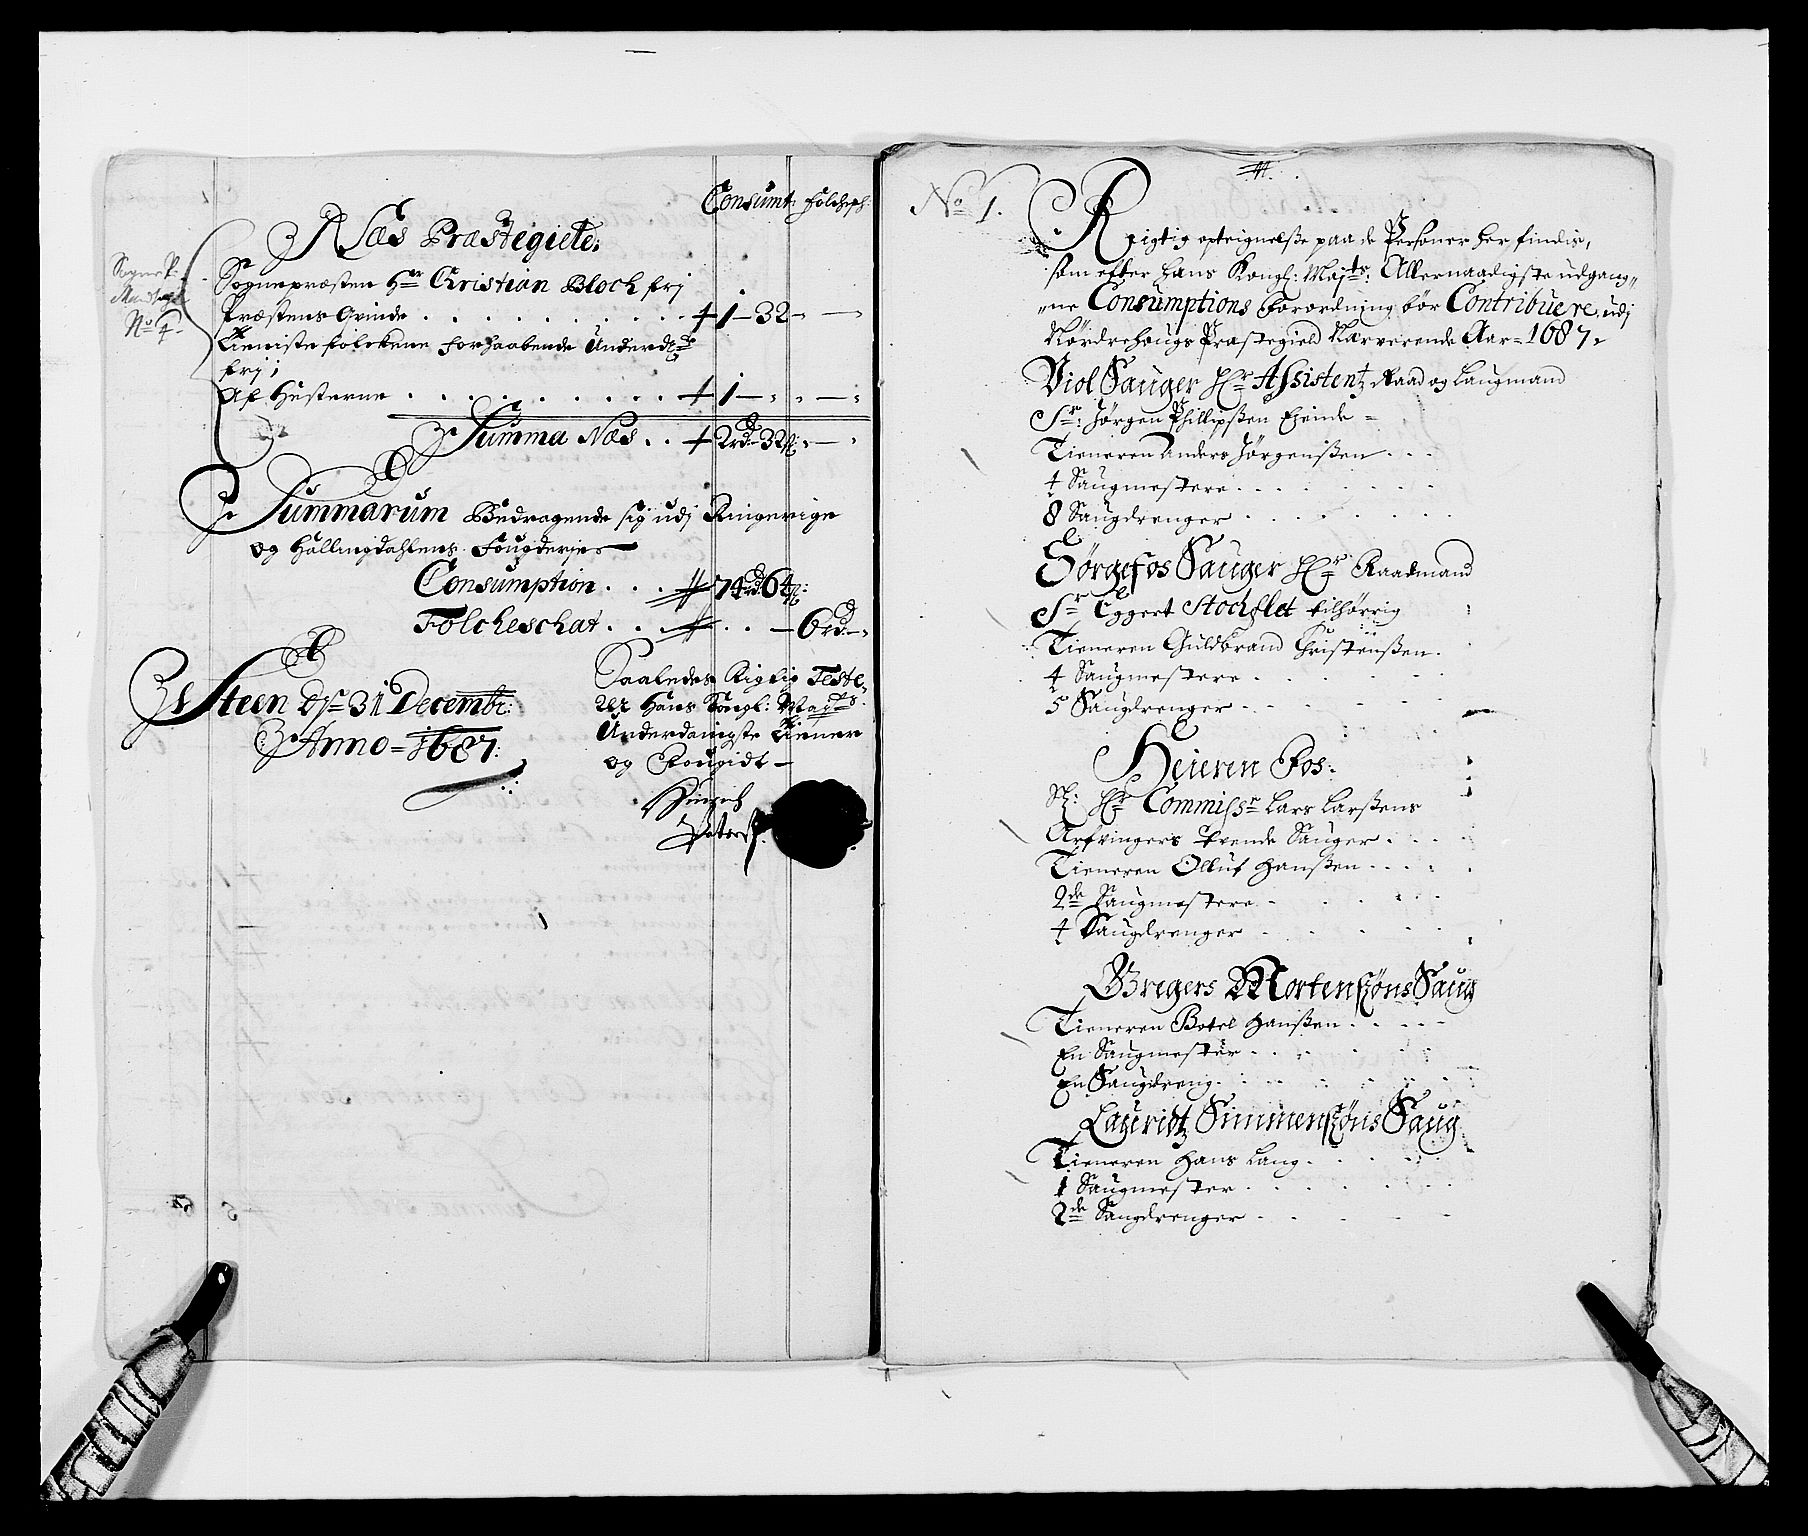 Consumt: Folchesch:
Næs Præstegield:
Sogne P:
Mandtall
No 4.
Sognepræsten Hr Christian Bloch frj
Præstens Qvinde . . . . . . . . . 1 – 32 – –
Tieniste folckene forhaabende Underd:
frj;
Af Husterne . . . . . . . . . . 1 – – –
Summa Næs . . 2 rd 32 ß – –
Summarum Bedragende sig udj Ringerige
og Hallingdahlens Fougderje –
Consumption . . . 74 rd 64 ß:
Folcheschat . . . . . – 6 rd –
Steen Dn 31 Decembr:
Anno = 1687:
Saaledes Rigtig Teste-
rer Hans Kongl: Mayts
Underdanigste Tiener
og Fougidt –
Hinrich
Peters
No 1.
Rigtig opteignelsse paa de Personer her findis,
som effter Hans Kongl: Majts: Allernaadigste udgang„
„ne Consumptions Forordning bør Contribuere, udj
Nordrehougs Præstegield Nærverende Aar = 1687 =
Viol Sauger Hr Assistentz Raad og Laugmand
Sr: Jørgen Phillipssen Eyende =
Tieneren Anders Jørgenssen . . .
4 Saugmestere . . . . . . . .
8 Saugdrenger . . . . . . . .
Hørgefos Sauger Hr Raadmand
Sr Eggert Stochflet tilhørrig
Tieneren Guldbrand Christenssen .
4 Saugmestere . . . . . . .
5 Saugdrenger . . . . . . .
Heieren Fos.
Sl: Hr Commissr Lars Larssens
Arfvingers Tvende Sauger . . . .
Tieneren Olluf Hanssen . . . . .
2de Saugmestere . . . . . .
4 Saugdrenger . . . . . . .
Gregers Mortensøns Saug
Tieneren Botel Hanssen . . . . .
En Saugmester . . . . . . .
En Saugdreng . . . . . . . .
Lauridtz Simmensøns Saug
Tieneren Hans Lang . . . . . .
1 Saugmester . . . . . . . .
2de Saugdrenger . . . . . .